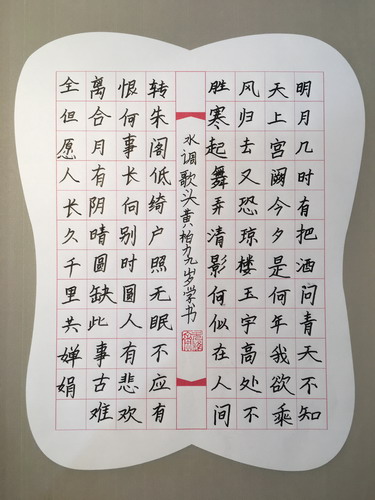 明月几时有把酒问青天不知
天上宫阙今夕是何年我欲乘
风归去又恐琼楼玉宇高处不
胜寒起舞弄清影何似在人间
水调歌头黄柏九岁学书
转朱阁低绮户照无眠不应有
恨何事长向别时圆人有悲欢
离合月有阴晴圆缺此事古难
全但愿人长久千里共婵娟